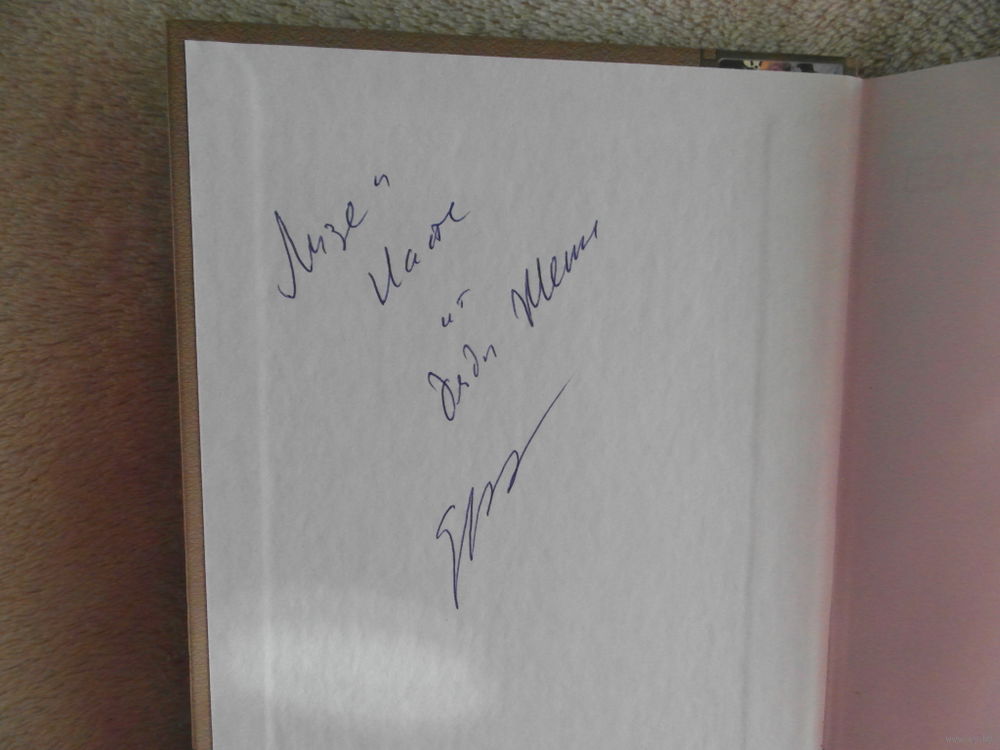 Лизе и
Насте
от
дяди Жени